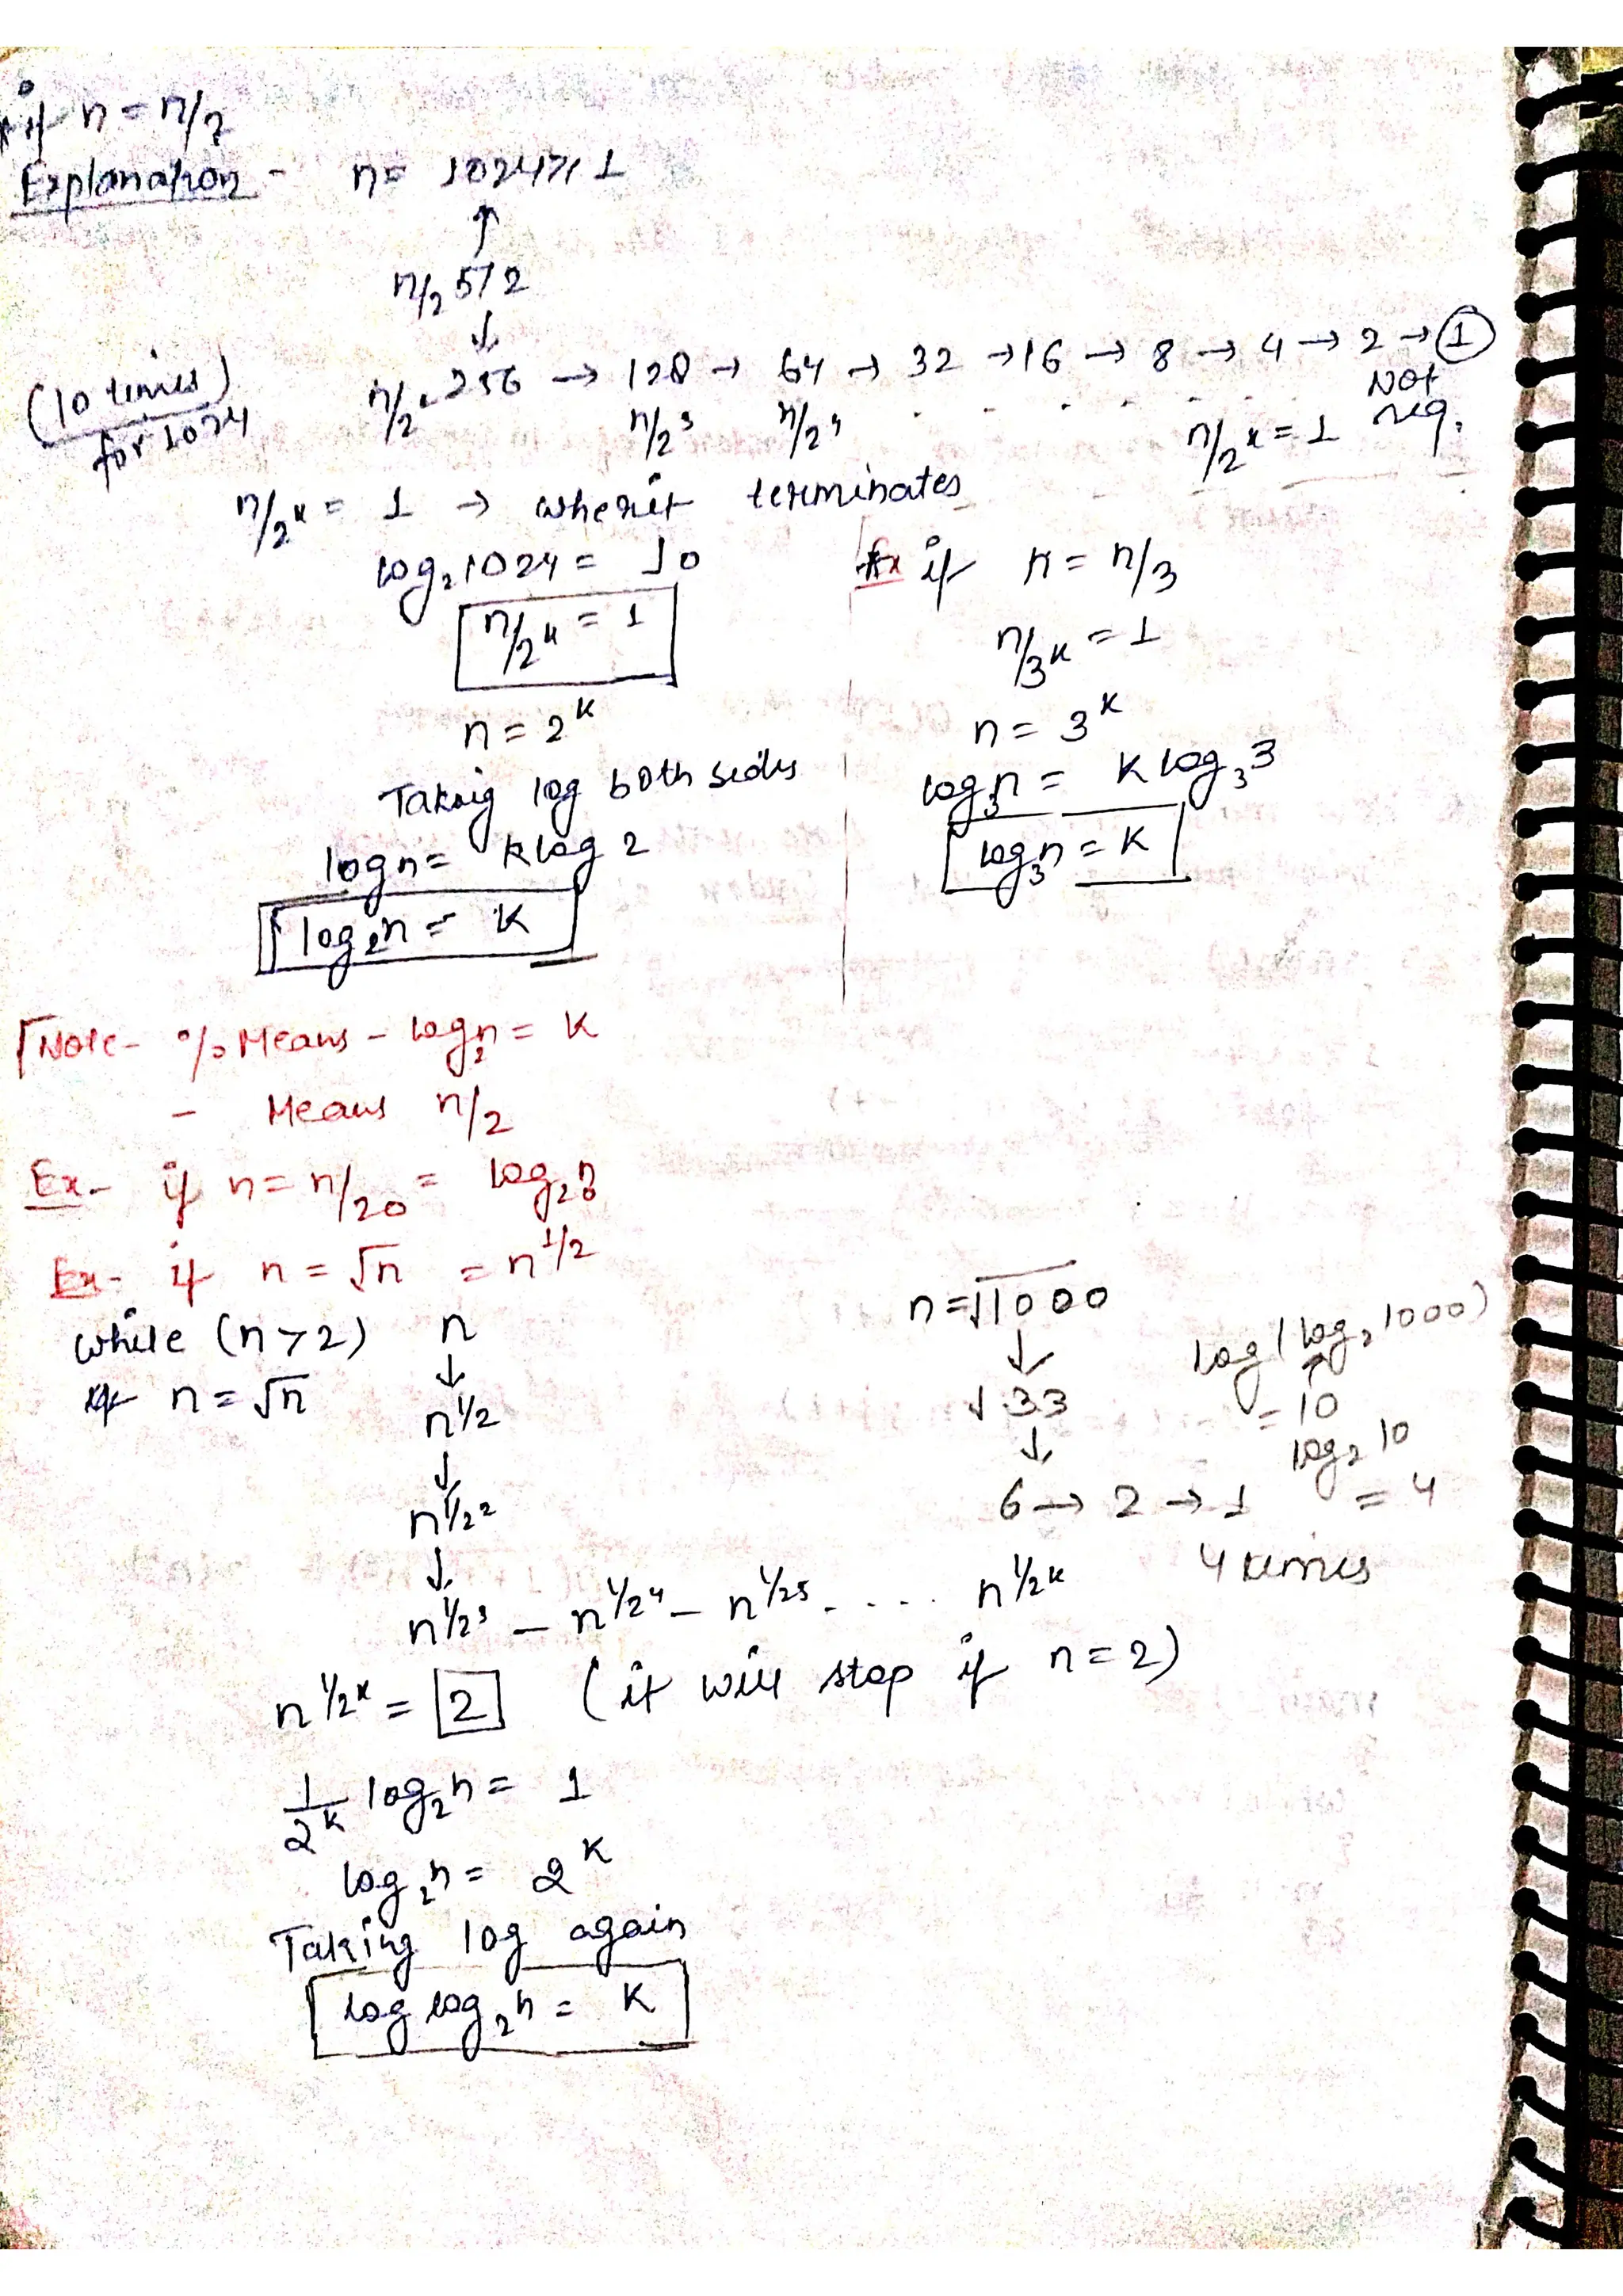 if n = n/2
Explanation - n = 1024 > 1
↑
n/2 512
↓
(10 times) n/2² 256 → 128 → 64 → 32 → 16 → 8 → 4 → 2 → 1
for 1024 n/2³ n/2⁴ . . . . . . n/2^k = 1 Not req.
n/2^k = 1 → when it terminates
log₂1024 = 10
n/2^k = 1
n = 2^k
Taking log both sides
log n = k log 2
log₂n = k
Ex if n = n/3
n/3^k = 1
n = 3^k
log₃n = k log₃3
log₃n = k
Note - % Means - log₂n = k
- Means n/2
Ex- if n = n/20 = log₂
Ex- if n = √n = n^1/2
while (n > 2)
n = √n
n
↓
n^1/2
↓
n^1/2²
↓
n^1/2³ - n^1/2⁴ - n^1/2⁵ - .... n^1/2^k
n = √1000
↓
√33
↓
6 → 2 → 1
log(log₂1000)
↑
= 10
log₂10
= 4
4 times
n^1/2^k = 2 (it will stop if n = 2)
1/2^k log₂n = 1
log₂n = 2^k
Taking log again
log log₂n = k